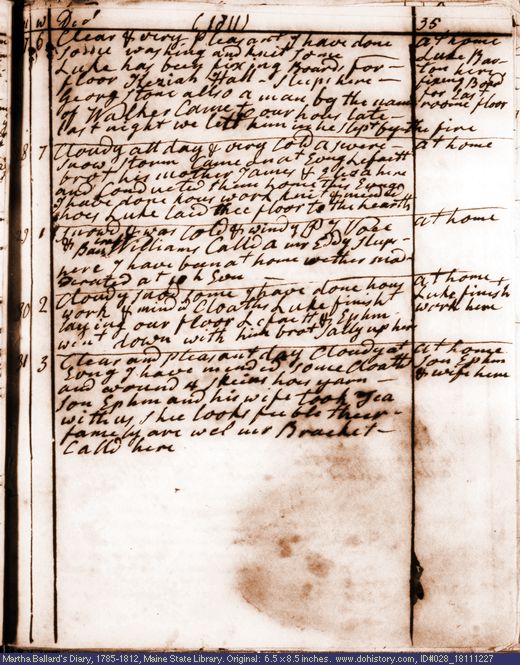 w Dec^r (1811) 35
7 6 Clear & very pleasant I have done at home
Some washing and knit Some Luke Bar
Luke has been fixing Boards for ton here
floor Keziah Hall Sleeps here fixing Bords
George time also a man by the name for East
of Walker Came to our hous late roome floor
last night we lett him in he slept by the fire
8 7 Cloudy all day & very cold a severe at home
snow storm Came on at Evng
brot his mother James & Eliza here
and Conducted them home this Evng
I have done hous work knit & mended
hoes Luke laid the floor to the hearth
29 1 Snowd & was cold & windy at home
& Williams Calld a mr Eddy sleeps
here I have been at home wether mod
erated at
30 2 Cloudy Snowd some I have done hous at home
work & mind Cloaths Luke finisht Luke finish
laying our floor & Ephm work here
went down with him brot Sally up her
31 3 Clear and pleasant day Cloudy at at home
Evng I have mended some Cloaths Son Ephm
and wound 4 skeins hos yarn & wife here
Son Ephm and his wife took Tea
with us, She looks feeble their
famely are wel mr Bracket
Calld here
Martha Ballard's Diary, 1785-1812, Maine State Library. Original: 6.5 x 8.5 inches. www.dohistory.com, ID#028_18111227